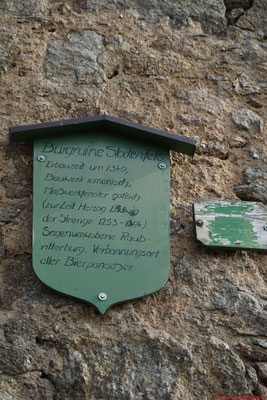 Burgruine Stockenfels
Erbauzeit um 1340.
Bauwerk romanisch,
Maßwerkfenster gotisch
(zur Zeit Herzog Ludwig
der Strenge 1253-1294)
Sagenumwobene Raub-
ritterburg. Verbannungsort
aller Bierpanscher